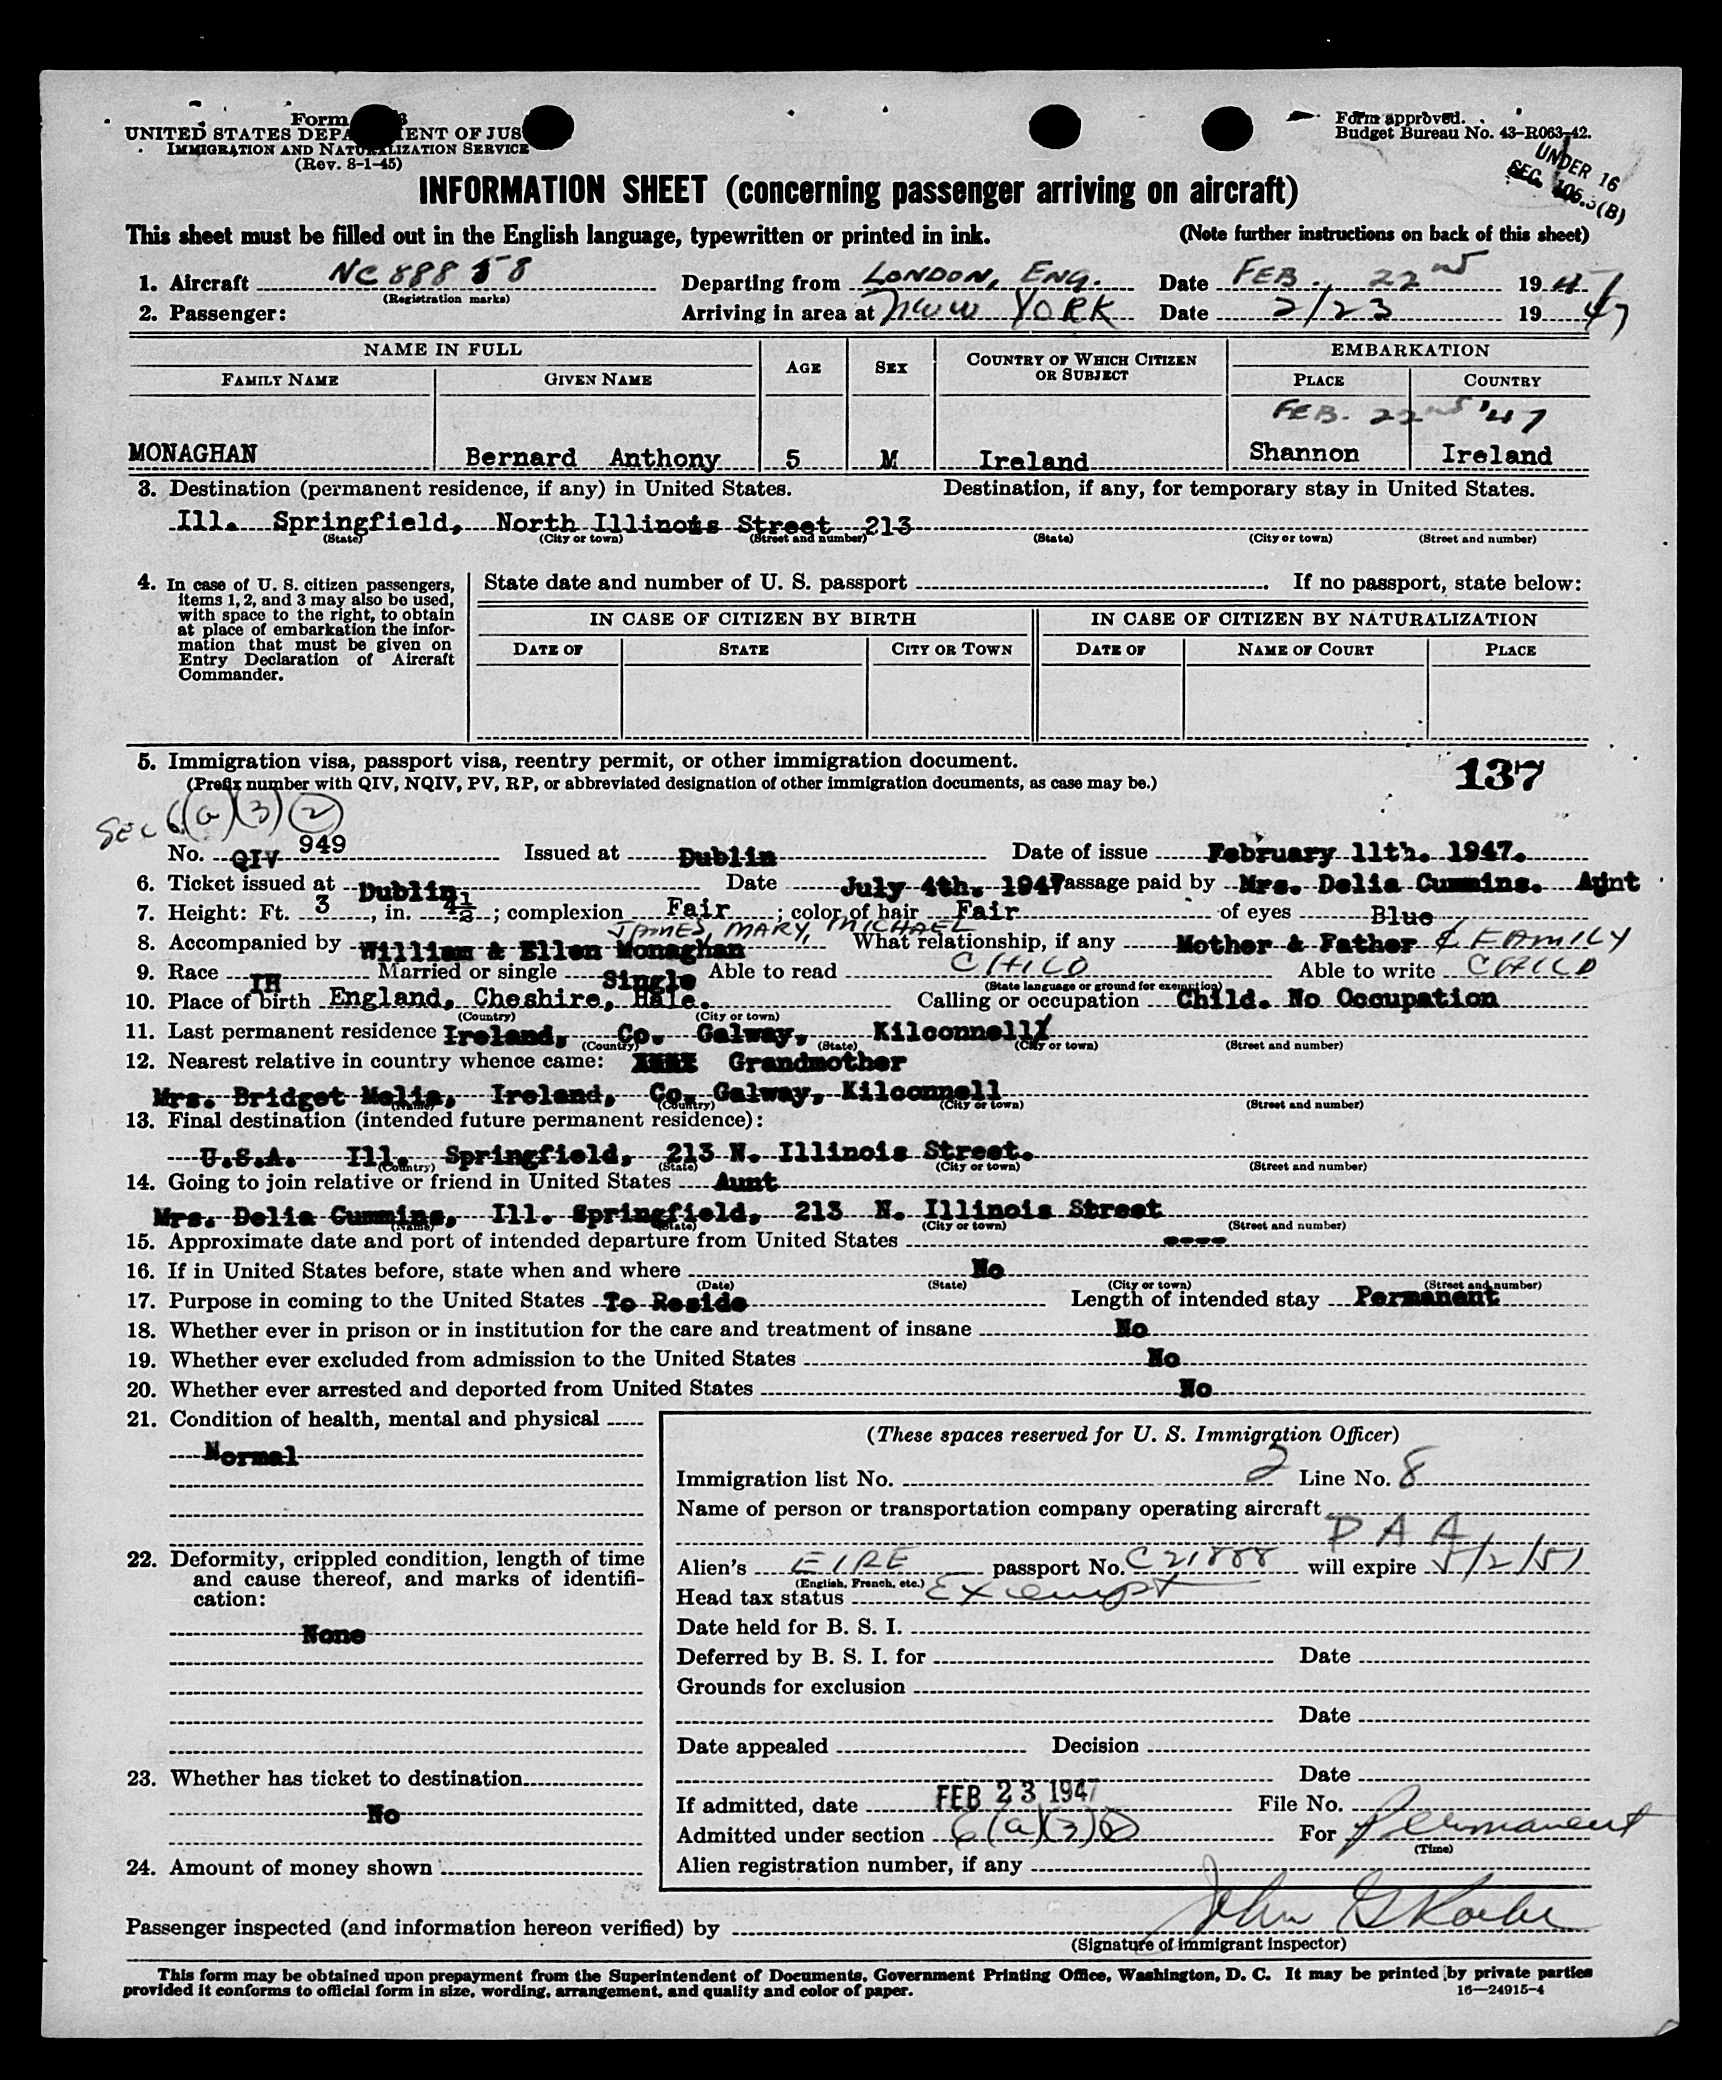 Form
UNITED STATES DEPARTMENT OF JUS
IMMIGRATION AND NATURALIZATION SERVICE
(Rev. 8-1-45)
Form approved.
Budget Bureau No. 43-R063-42.
UNDER 16
SEC. 106.3(B)
INFORMATION SHEET (concerning passenger arriving on aircraft)
This sheet must be filled out in the English language, typewritten or printed in ink. (Note further instructions on back of this sheet)
1. Aircraft NC 88858 Departing from LONDON, ENG. Date FEB. 22nd 1947
(Registration marks)
2. Passenger: Arriving in area at New YORK Date 2/23 1947
NAME IN FULL AGE SEX COUNTRY OF WHICH CITIZEN OR SUBJECT EMBARKATION
FAMILY NAME GIVEN NAME PLACE COUNTRY
FEB. 22nd '47
MONAGHAN Bernard Anthony 5 M Ireland Shannon Ireland
3. Destination (permanent residence, if any) in United States. Destination, if any, for temporary stay in United States.
Ill. Springfield, North Illinois Street 213
(State) (City or town) (Street and number) (State) (City or town) (Street and number)
4. In case of U. S. citizen passengers, items 1, 2, and 3 may also be used, with space to the right, to obtain at place of embarkation the information that must be given on Entry Declaration of Aircraft Commander.
State date and number of U. S. passport . If no passport, state below:
IN CASE OF CITIZEN BY BIRTH IN CASE OF CITIZEN BY NATURALIZATION
DATE OF STATE CITY OR TOWN DATE OF NAME OF COURT PLACE
5. Immigration visa, passport visa, reentry permit, or other immigration document. 137
(Prefix number with QIV, NQIV, PV, RP, or abbreviated designation of other immigration documents, as case may be.)
SEC 6(a)(3)(2)
No. QIV 949 Issued at Dublin Date of issue February 11th. 1947.
6. Ticket issued at Dublin Date July 4th. 1947 Passage paid by Mrs. Delia Cummins. Aunt
7. Height: Ft. 3, in. 4½; complexion Fair; color of hair Fair of eyes Blue
JAMES, MARY, MICHAEL
8. Accompanied by William & Ellen Monaghan What relationship, if any Mother & Father & FAMILY
9. Race IH Married or single Single Able to read CHILD Able to write CHILD
(State language or ground for exemption)
10. Place of birth England, Cheshire, Hale. Calling or occupation Child. No Occupation
(Country) (City or town)
11. Last permanent residence Ireland, Co. Galway, Kilconnell
(Country) (State) (City or town) (Street and number)
12. Nearest relative in country whence came: XXXX Grandmother
Mrs. Bridget Melia, Ireland, Co. Galway, Kilconnell
(Name) (Country) (City or town) (Street and number)
13. Final destination (intended future permanent residence):
U.S.A. Ill. Springfield, 213 N. Illinois Street.
(Country) (State) (City or town) (Street and number)
14. Going to join relative or friend in United States Aunt
Mrs. Delia Cummins, Ill. Springfield, 213 N. Illinois Street
(Name) (State) (City or town) (Street and number)
15. Approximate date and port of intended departure from United States ----
16. If in United States before, state when and where No
(Date) (State) (City or town) (Street and number)
17. Purpose in coming to the United States To Reside Length of intended stay Permanent
18. Whether ever in prison or in institution for the care and treatment of insane No
19. Whether ever excluded from admission to the United States No
20. Whether ever arrested and deported from United States No
21. Condition of health, mental and physical
Normal
22. Deformity, crippled condition, length of time and cause thereof, and marks of identification:
None
23. Whether has ticket to destination
No
24. Amount of money shown
(These spaces reserved for U. S. Immigration Officer)
Immigration list No. 2 Line No. 8
Name of person or transportation company operating aircraft
P A A
Alien's EIRE passport No. C21888 will expire 5/2/51
(English, French, etc.)
Head tax status Exempt
Date held for B. S. I.
Deferred by B. S. I. for Date
Grounds for exclusion
Date
Date appealed Decision
Date
If admitted, date FEB 23 1947 File No.
Admitted under section 6(a)(3)(2) For Permanent
(Time)
Alien registration number, if any
Passenger inspected (and information hereon verified) by John G
(Signature of immigrant inspector)
This form may be obtained upon prepayment from the Superintendent of Documents, Government Printing Office, Washington, D. C. It may be printed by private parties
provided it conforms to official form in size, wording, arrangement, and quality and color of paper. 16—24915-4